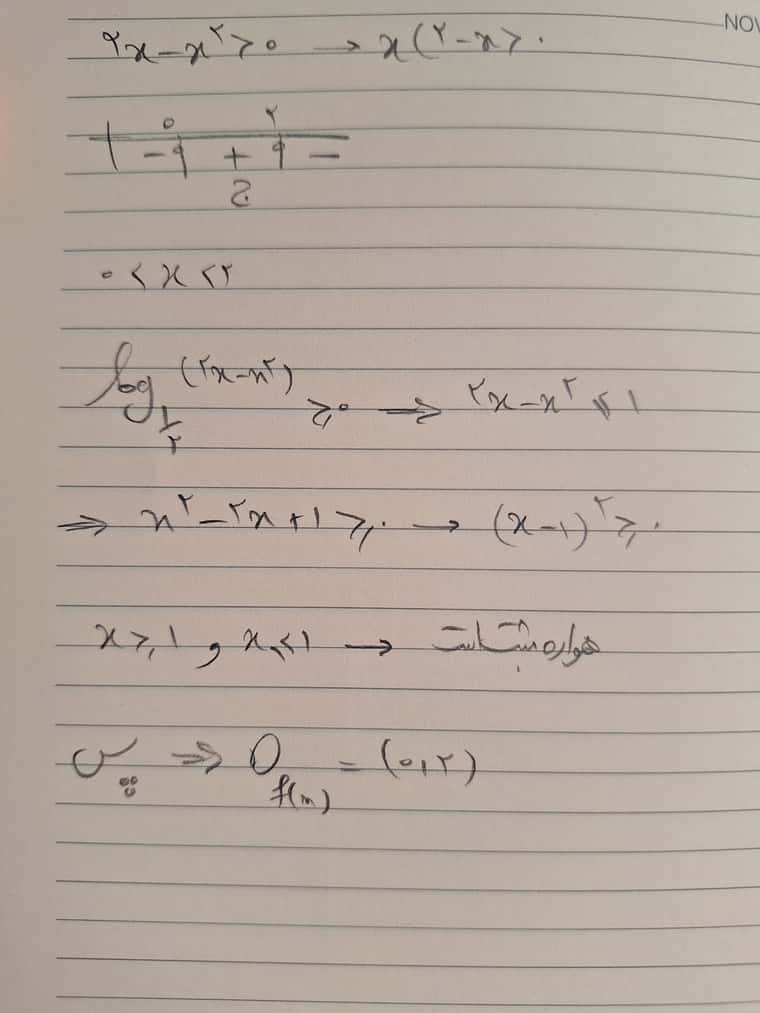 NOV
۲x − x² > ۰ → x(۲ − x > ۰
۰ ۲
− + −
ج
۰ < x < ۲
log_{۱/۲}^{(۲x − x²)} ≥ ۰ ⇒ ۲x − x² ≤ ۱
⇒ x² − ۲x + ۱ ≥ ۰ → (x − ۱)² ≥ ۰
x ≥ ۱ و x ≤ ۱ → همواره مثبت است
پس ⇒ D_{f(x)} = (۰,۲)